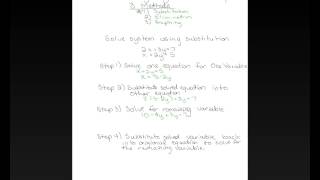 3 Methods
1) Substitution
2) Elimination
3) Graphing
Solve system using substitution
2x+3y=7
x+2y=5
Step 1) Solve one equation for One Variable
x+2y=5
x=5-2y
Step 2) Substitute solved equation into
other equation
2(5-2y)+3y=7
Step 3) Solve for remaining variable
10-4y+3y=7
Step 4) Substitute solved variable back
into original equation to solve for
the remaining variable.